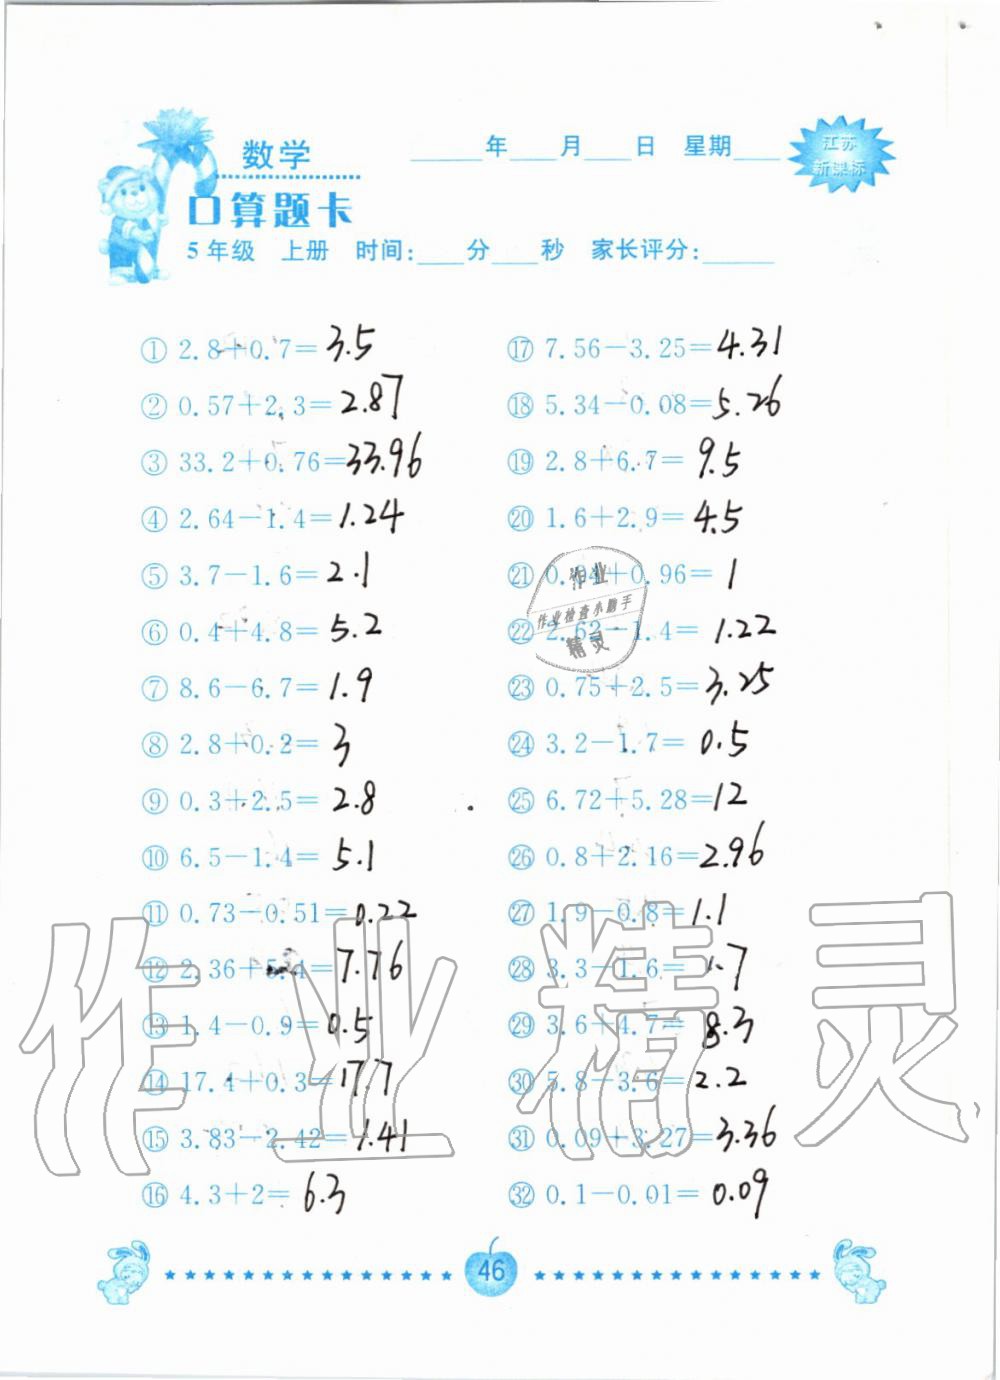 数学
____年____月____日 星期____
江苏
新课标
口算题卡
5年级 上册 时间:____分____秒 家长评分:______
① 2.8+0.7=3.5
② 0.57+2.3=2.87
③ 33.2+0.76=33.96
④ 2.64-1.4=1.24
⑤ 3.7-1.6=2.1
⑥ 0.4+4.8=5.2
⑦ 8.6-6.7=1.9
⑧ 2.8+0.2=3
⑨ 0.3+2.5=2.8
⑩ 6.5-1.4=5.1
⑪ 0.73-0.51=0.22
⑫ 2.36+5.4=7.76
⑬ 1.4-0.9=0.5
⑭ 17.4+0.3=17.7
⑮ 3.83-2.42=1.41
⑯ 4.3+2=6.3
⑰ 7.56-3.25=4.31
⑱ 5.34-0.08=5.26
⑲ 2.8+6.7=9.5
⑳ 1.6+2.9=4.5
㉑ 0.04+0.96=1
㉒ 2.63-1.4=1.22
㉓ 0.75+2.5=3.25
㉔ 3.2-1.7=0.5
㉕ 6.72+5.28=12
㉖ 0.8+2.16=2.96
㉗ 1.9-0.8=1.1
㉘ 3.3-1.6=1.7
㉙ 3.6+4.7=8.3
㉚ 5.8-3.6=2.2
㉛ 0.09+3.27=3.36
㉜ 0.1-0.01=0.09
作业
作业检查小助手
精灵
作业精灵
46